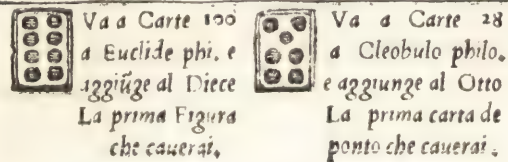 Va a Carte 100
a Euclide phi. e
aggiũge al Diece
La prima Figura
che cauerai.
Va a Carte 28
a Cleobulo philo.
e aggiunge al Otto
La prima carta de
ponto che cauerai.